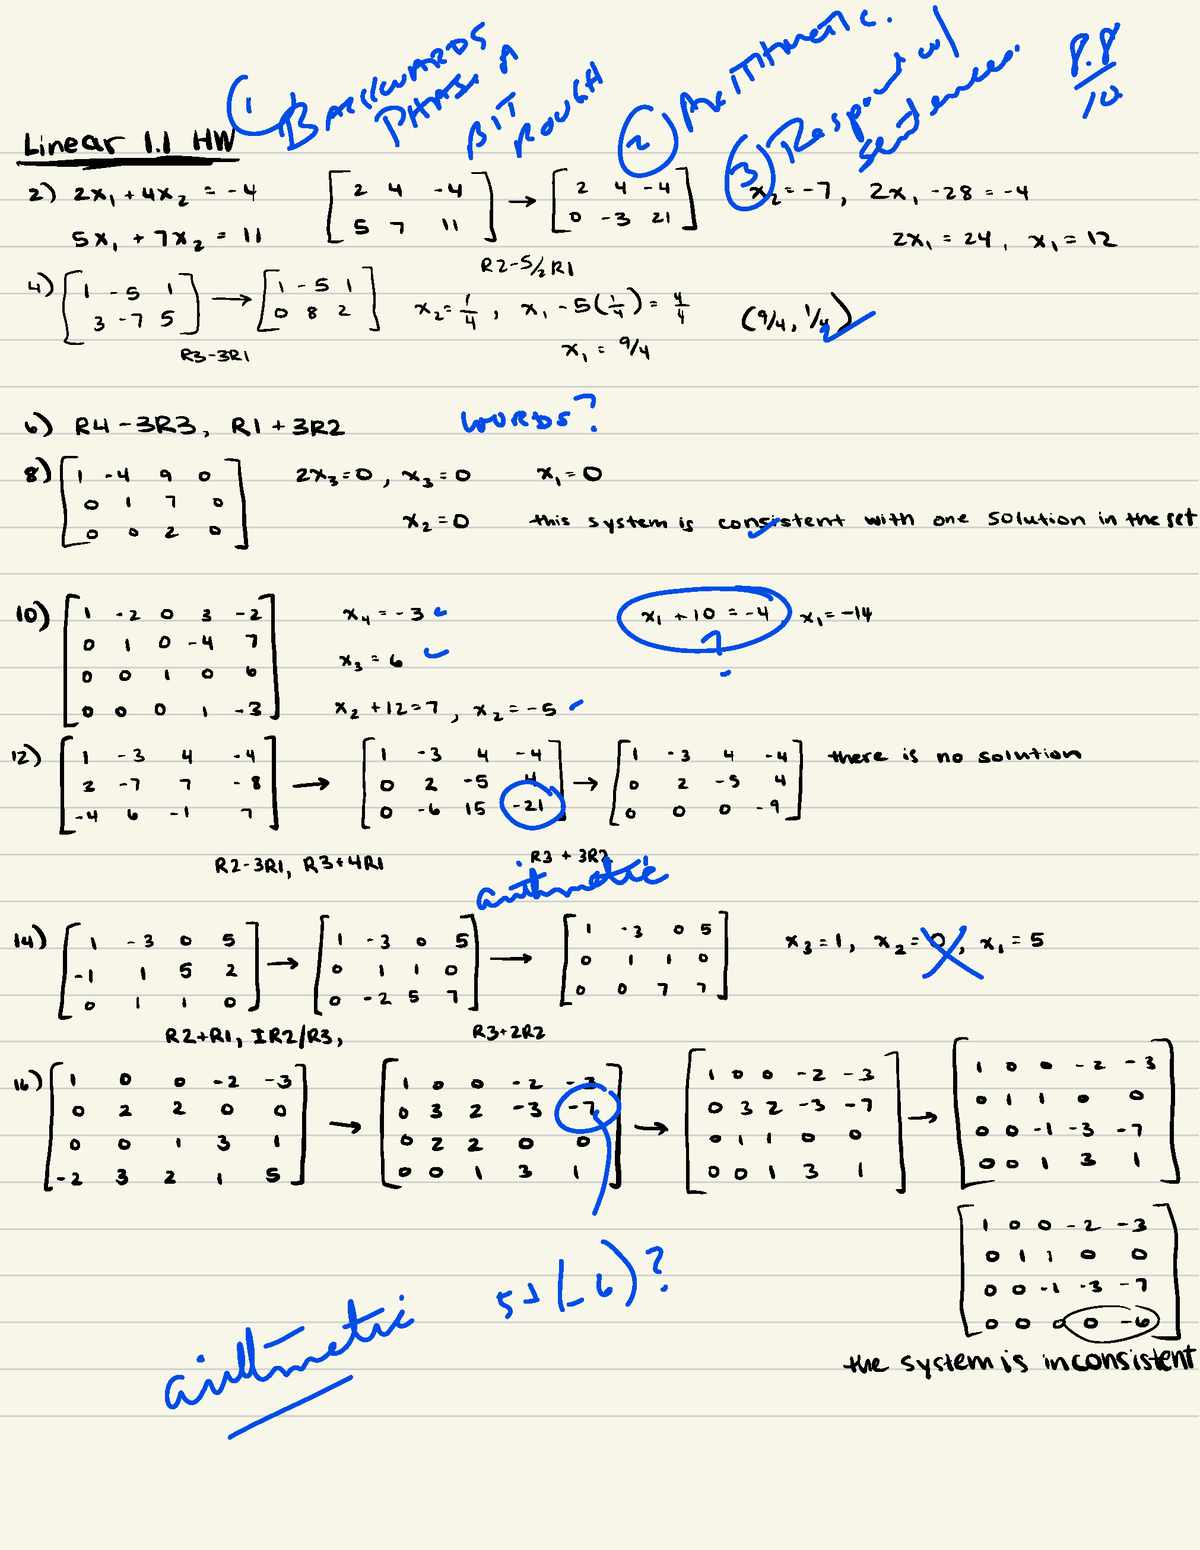 ① BACKWARDS PHASE A BIT ROUGH
② ARITHMETIC.
③ Respond w/ sentences.
8.8/10
Linear 1.1 HW
2) 2x₁ + 4x₂ = -4
5x₁ + 7x₂ = 11
[2 4 -4
5 7 11]
→
[2 4 -4
0 -3 21]
R2-5/2R1
x₂ = -7, 2x₁ -28 = -4
2x₁ = 24, x₁ = 12
4) [1 -5 1
3 -7 5]
→
[1 -5 1
0 8 2]
R3-3R1
x₂ = 1/4, x₁ - 5(1/4) = 4/4
x₁ = 9/4
(9/4, 1/4)
6) R4-3R3, R1+3R2
WORDS?
8) [1 -4 9 0
0 1 7 0
0 0 2 0]
2x₃=0, x₃=0 x₁=0
x₂=0 this system is consistent with one solution in the set
10) [1 -2 0 3 -2
0 1 0 -4 7
0 0 1 0 6
0 0 0 1 -3]
x₄ = -3
x₃ = 6
x₂ + 12 = 7, x₂ = -5
x₁ + 10 = -4, x₁ = -14
?
12) [1 -3 4 -4
3 -7 7 -8
-4 6 -1 7]
→
[1 -3 4 -4
0 2 -5 4
0 -6 15 -21]
→
[1 -3 4 -4
0 2 -5 4
0 0 0 -9]
there is no solution
R2-3R1, R3+4R1
R3 + 3R2
arithmetic
14) [1 -3 0 5
-1 1 5 2
0 1 1 0]
→
[1 -3 0 5
0 1 1 0
0 -2 5 7]
→
[1 -3 0 5
0 1 1 0
0 0 7 7]
x₃=1, x₂=0, x₁=5
R2+R1, IR2/R3,
R3+2R2
16) [1 0 0 -2 -3
0 2 2 0 0
0 0 1 3 1
-2 3 2 1 5]
→
[1 0 0 -2 -3
0 3 2 -3 -7
0 2 2 0 0
0 0 1 3 1]
→
[1 0 0 -2 -3
0 3 2 -3 -7
0 1 1 0 0
0 0 1 3 1]
→
[1 0 0 -2 -3
0 1 1 0 0
0 0 -1 -3 -7
0 0 1 3 1]
[1 0 0 -2 -3
0 1 1 0 0
0 0 -1 -3 -7
0 0 0 0 -6]
5+(-6)?
arithmetic
the system is inconsistent